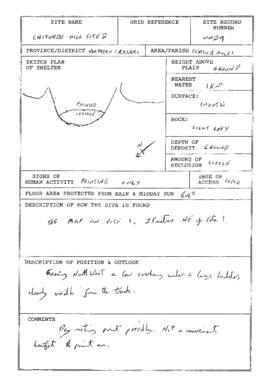 SITE NAME
GRID REFERENCE
SITE RECORD
NUMBER
CHITUNDU HILL SITE 2
PROVINCE/DISTRICT
AREA/PARISH
SKETCH PLAN
OF SHELTER
HEIGHT ABOVE
PLAIN GROUND
NEAREST
WATER 1 Km
SURFACE:
SMOOTH
PAINTED
SURFACE
ROCK:
LIGHT GREY
N
DEPTH OF
DEPOSIT GROUND
AMOUNT OF
SECLUSION LITTLE
SIGNS OF
HUMAN ACTIVITY PAINTING ONLY
EASE OF
ACCESS 10/10
FLOOR AREA PROTECTED FROM RAIN & MIDDAY SUN 6m²
DESCRIPTION OF HOW THE SITE IS FOUND
SEE MAP ON SITE 1, 25 metres NE of Site 1.
DESCRIPTION OF POSITION & OUTLOOK
Facing North West a low overhang under a large
clearly visible from the track.
COMMENTS
Day resting point possibly. Not a convenient
height to paint on.